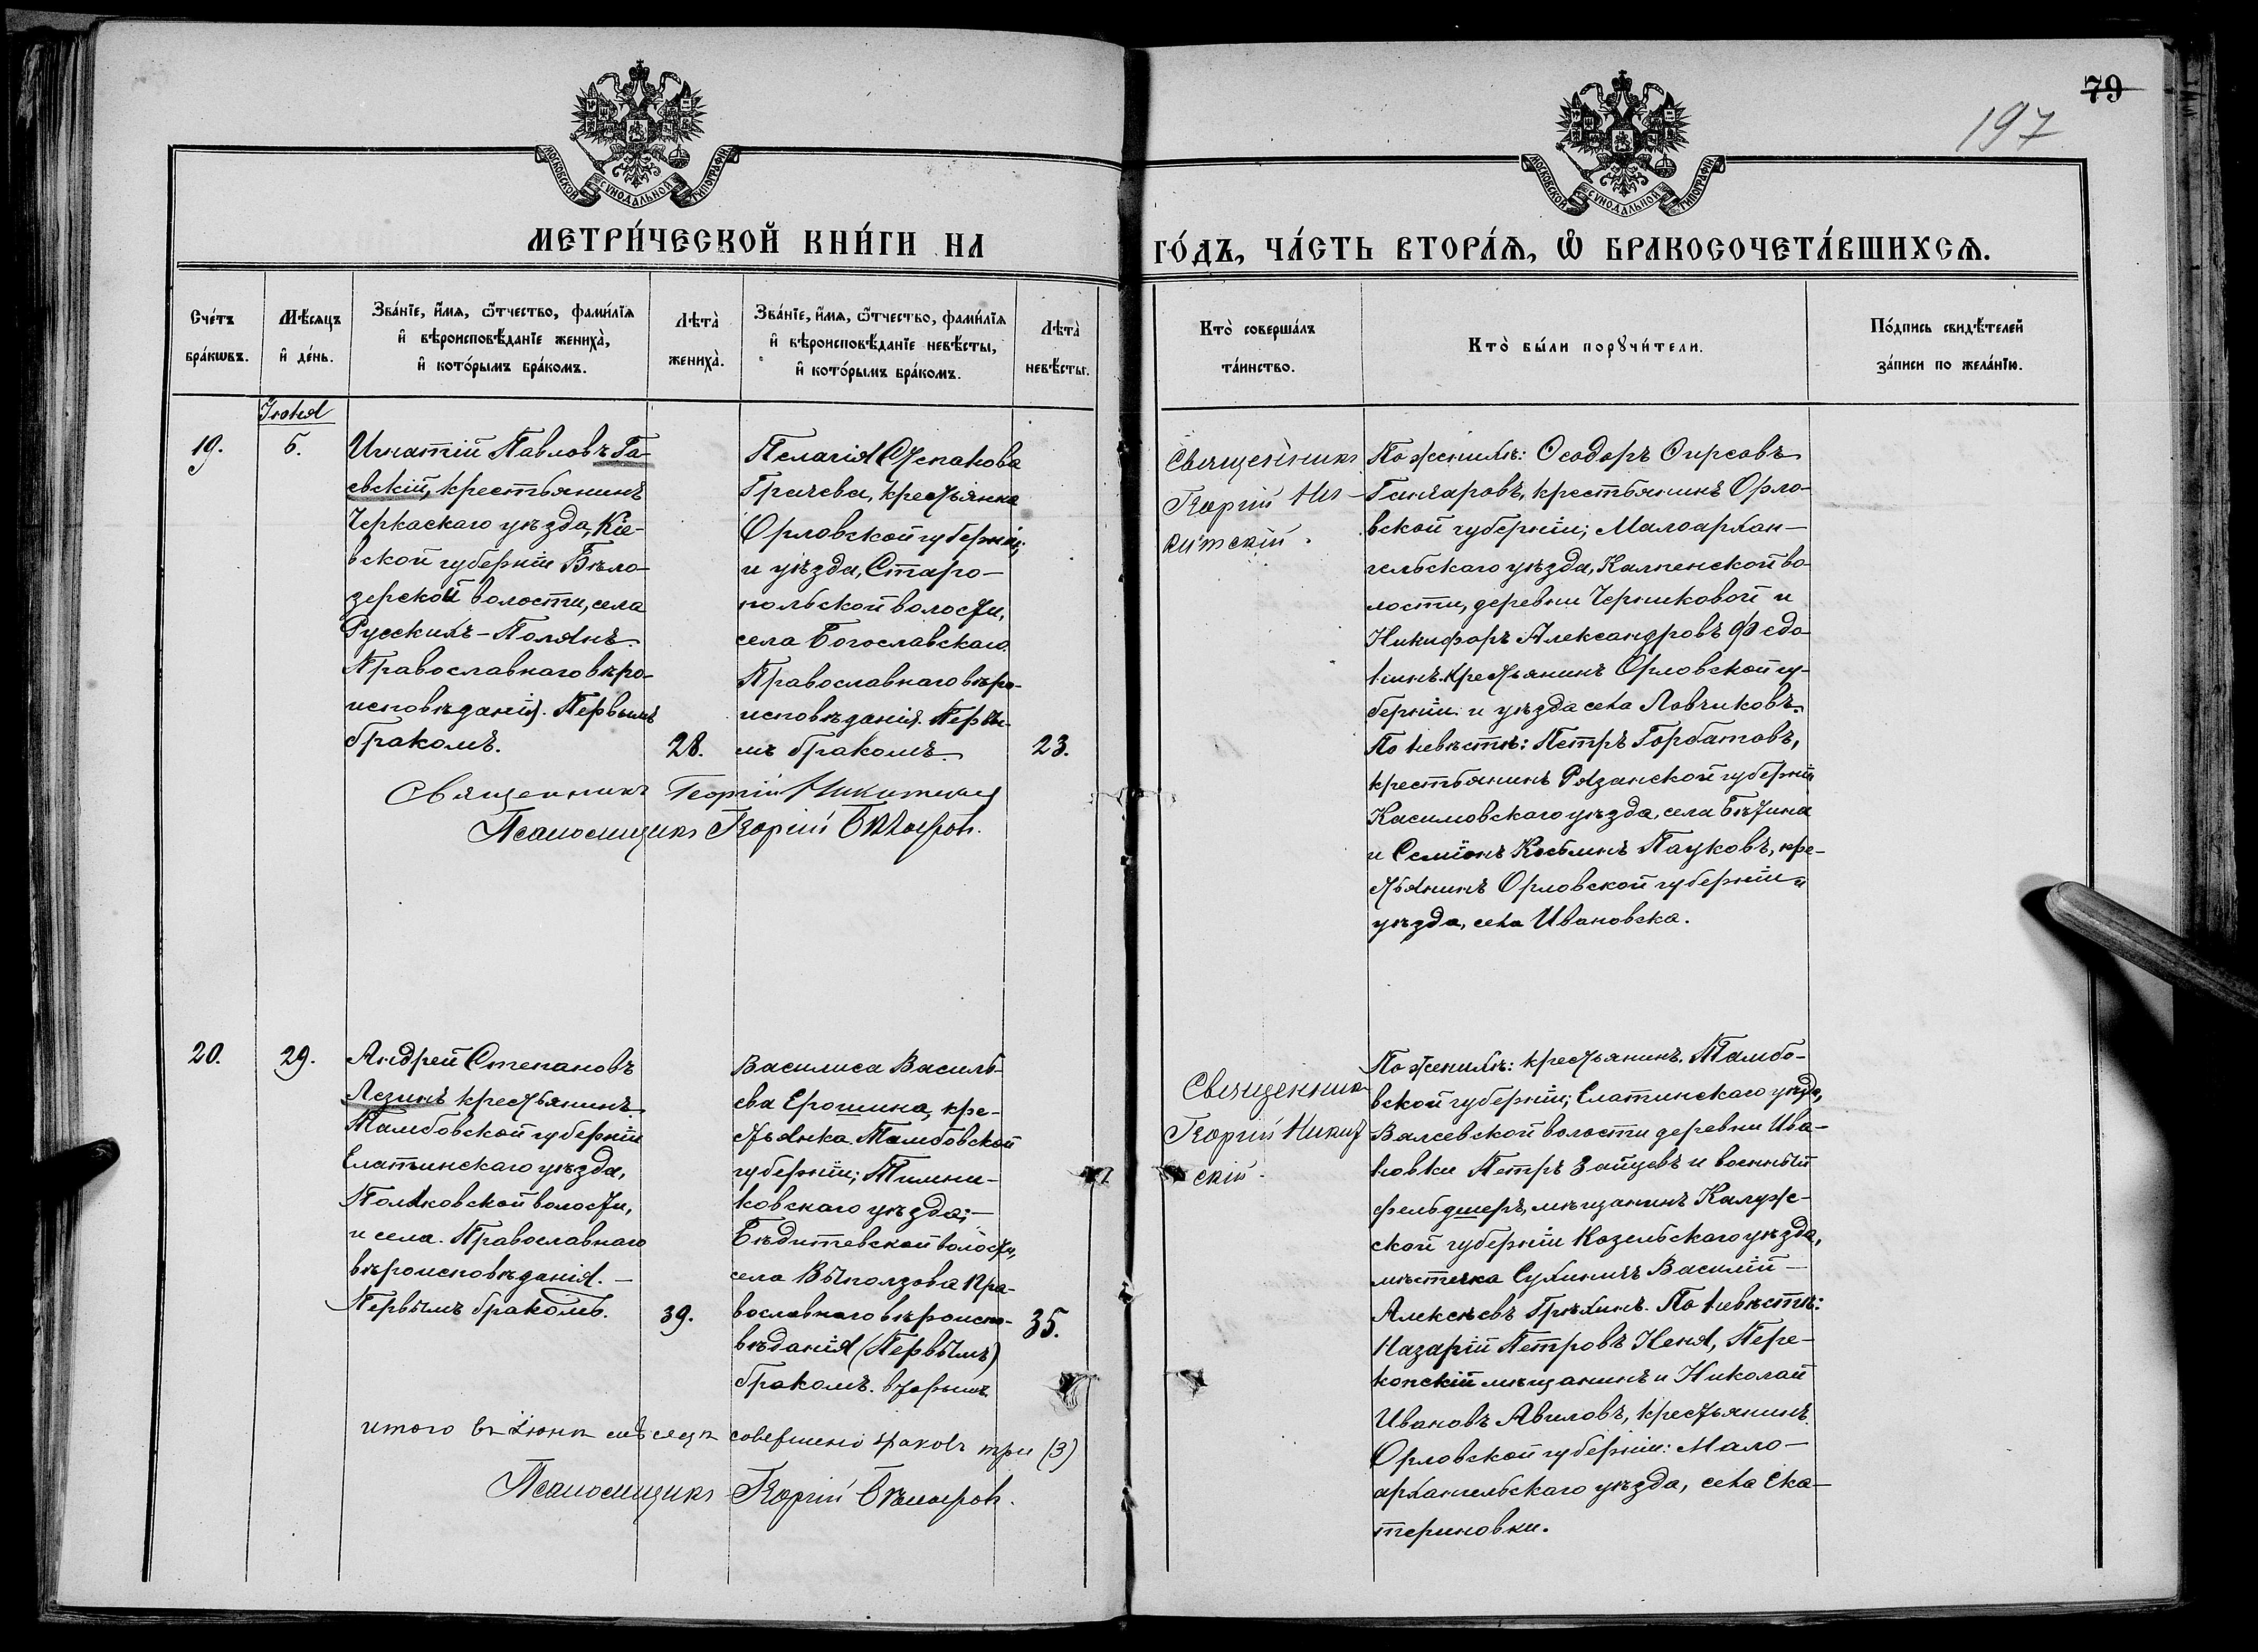 79
197
МОСКОВСКОЙ СѴНОДАЛЬНОЙ ТИПОГРАФІИ
МОСКОВСКОЙ СѴНОДАЛЬНОЙ ТИПОГРАФІИ
МЕТРИ́ЧЕСКОЙ КНИ́ГИ НА
ГО́ДЪ, ЧА́СТЬ ВТОРА́Ѧ, Ѽ БРАКОСОЧЕТА́ВШИХСѦ.
Сче́тъ
бра́кѡвъ.
Мѣ́сяцъ
и҆ де́нь.
Зва́нїе, и҆́мя, ѻ҆́тчество, фами́лїя
и҆ вѣроисповѣ́данїе жениха̀,
и҆ кото́рымъ бра́комъ.
Лѣта̀
жениха̀.
Зва́нїе, и҆́мя, ѻ҆́тчество, фами́лїя
и҆ вѣроисповѣ́данїе невѣ́сты,
и҆ кото́рымъ бра́комъ.
Лѣта̀
невѣ́сты.
Кто̀ соверша́лъ
та́инство.
Кто̀ бы́ли порꙋчи́тели.
По́дпись свидѣ́телей
за́писи по жела́нїю.
Іюня
19.
5.
Игнатій Павловъ Га-
евскій, крестьянинъ
Черкаскаго уѣзда, Кіе-
вской губерніи Бѣло-
зерской волости, села
Русскихъ-Полянъ.
Православнаго вѣро-
исповѣданія. Первымъ
бракомъ.
28.
Пелагія Степанова
Грачева, крестьянка
Орловской губерніи
и уѣзда, Старо-
польской волости,
села Богославскаго.
Православнаго вѣро-
исповѣданія. Первы-
мъ бракомъ.
23.
Священникъ Георгій Никитскій
Псаломщикъ Георгій
Священникъ
Георгій Ни-
китскій.
По женихѣ: Ѳеодоръ Ѳирсовъ
Ганчаровъ, крестьянинъ Орло-
вской губерніи; Малоархан-
гельскаго уѣзда, Калпенской во-
лости, деревни Черниковой и
Никифоръ Александровъ Федо-
крестьянинъ Орловской гу-
берніи и уѣзда села Ловчиковъ.
По невѣстѣ: Петръ Горбатовъ,
крестьянинъ Рязанской губерніи
Касимовскаго уѣзда, села Бѣтина
и Семіонъ Косьминъ Пауковъ, кре-
стьянинъ Орловской губерніи и
уѣзда, села Ивановска.
20.
29.
Андрей Степановъ
Лезинъ крестьянинъ
Тамбовской губерніи
Елатьинскаго уѣзда,
волости,
и села. Православнаго
вѣроисповѣданія.-
Первымъ бракомъ.
39.
Василиса Василь-
ева Ерошина, кре-
стьянка Тамбовской
губерніи; Тимни-
ковскаго уѣзда;-
волости,
села Выползова Пра-
вославнаго вѣроиспо-
вѣданія (Первымъ)
бракомъ. вторымъ
35.
итого въ Іюнѣ мѣсяцѣ совершено браковъ три (3)
Псаломщикъ Георгій
Священникъ
Георгій Никит
скій.
По женихѣ: крестьянинъ Тамбо-
вской губерніи; Елатинскаго уѣзда,
Валсевской волости деревни Ива-
новки Петръ Зайцевъ и военный
фельдшеръ, мѣщанинъ Калуж-
ской губерніи Козельскаго уѣзда,
мѣстечка Сухиничъ Василій-
Алексѣевъ Грѣхинъ. По невѣстѣ:
Назарій Петровъ Неня, Пере-
копскій мѣщанинъ и Николай
Ивановъ Авиловъ, крестьянинъ
Орловской губерніи: Мало-
архангельскаго уѣзда, села Ека-
териновки.